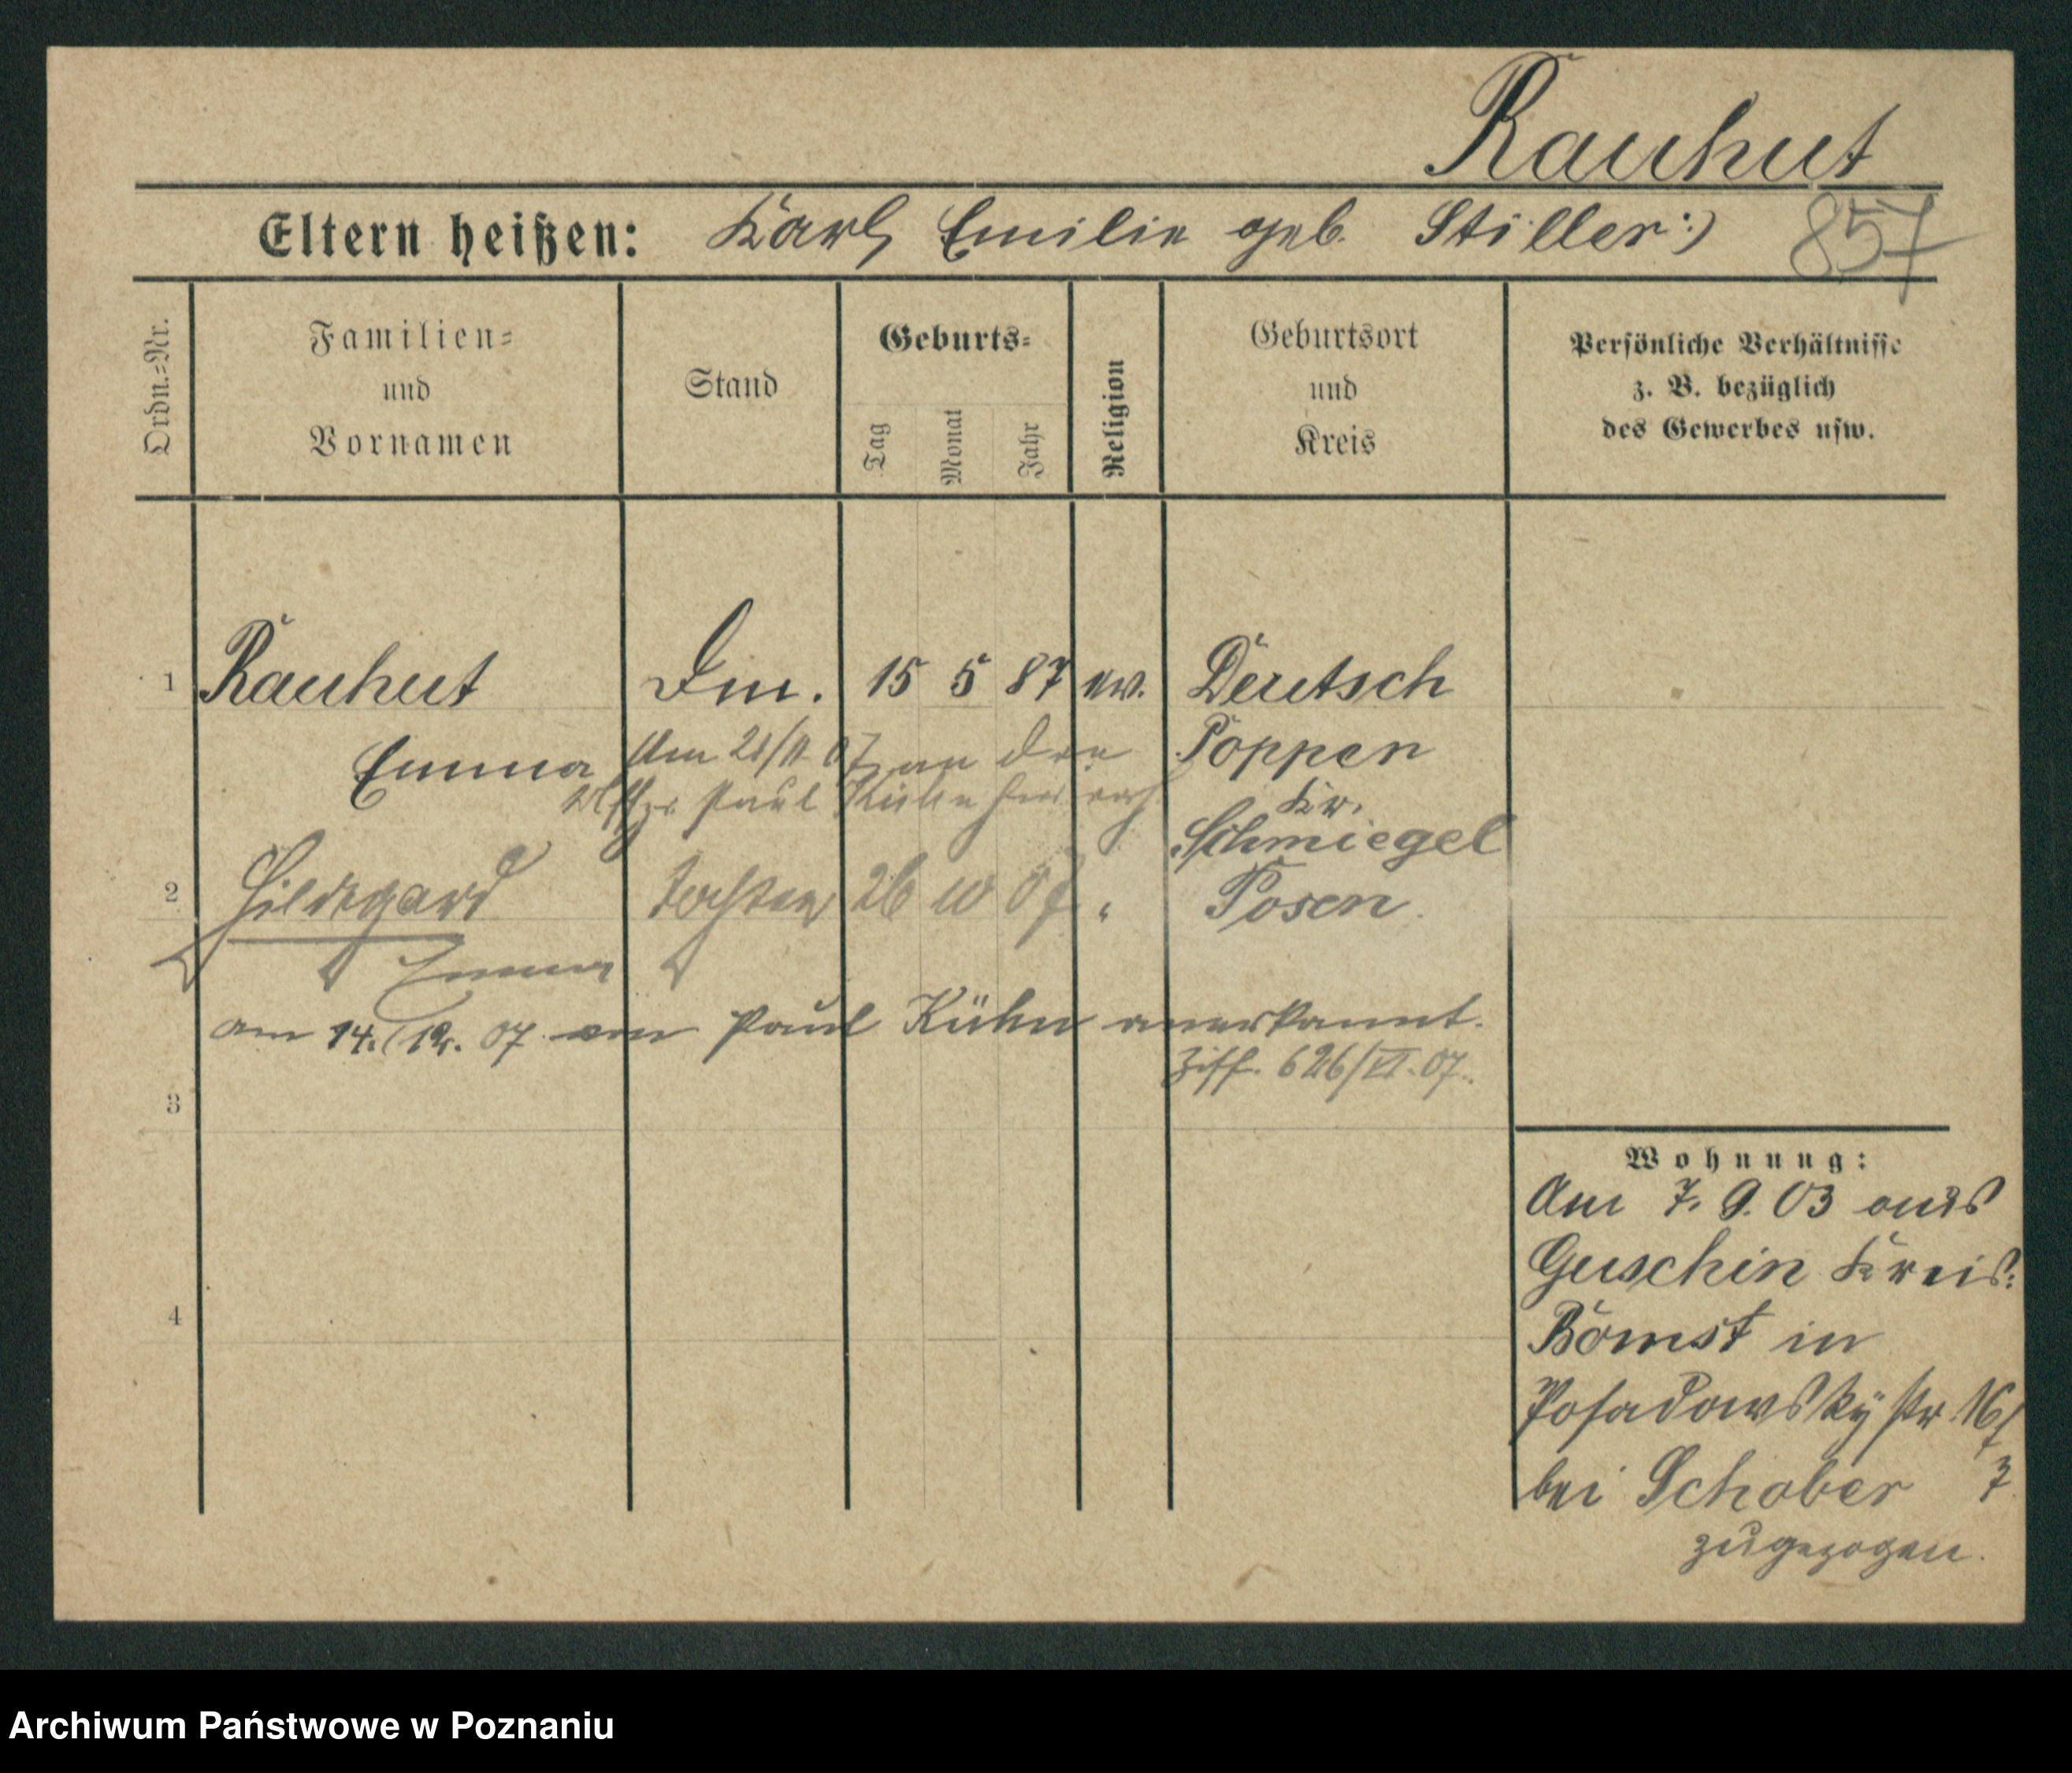 Rauhut
Eltern heißen: Karl, Emilie geb. Stiller :)
857
Ordn.-Nr.
Familien-
und
Vornamen
Stand
Geburts-
Tag
Monat
Jahr
Religion
Geburtsort
und
Kreis
Persönliche Verhältnisse
z. B. bezüglich
des Gewerbes usw.
1 Rauhut 15 5 87 ev. Deutsch
Emma Poppen
Am 21/11 07 an den
Paul Kühn
Kr.
Schmiegel
2 Hildegard Tochter 26 10 07 " Posen
Emma
am 14./12. 07 von Paul Kühn anerkannt.
Ziff. 626/VI. 07.
3
4
Wohnung:
Am 7. 9. 03 aus
Guschin Kreis:
Bomst in
Posadowsky str 16/
7
bei Schober
zugezogen.
Archiwum Państwowe w Poznaniu